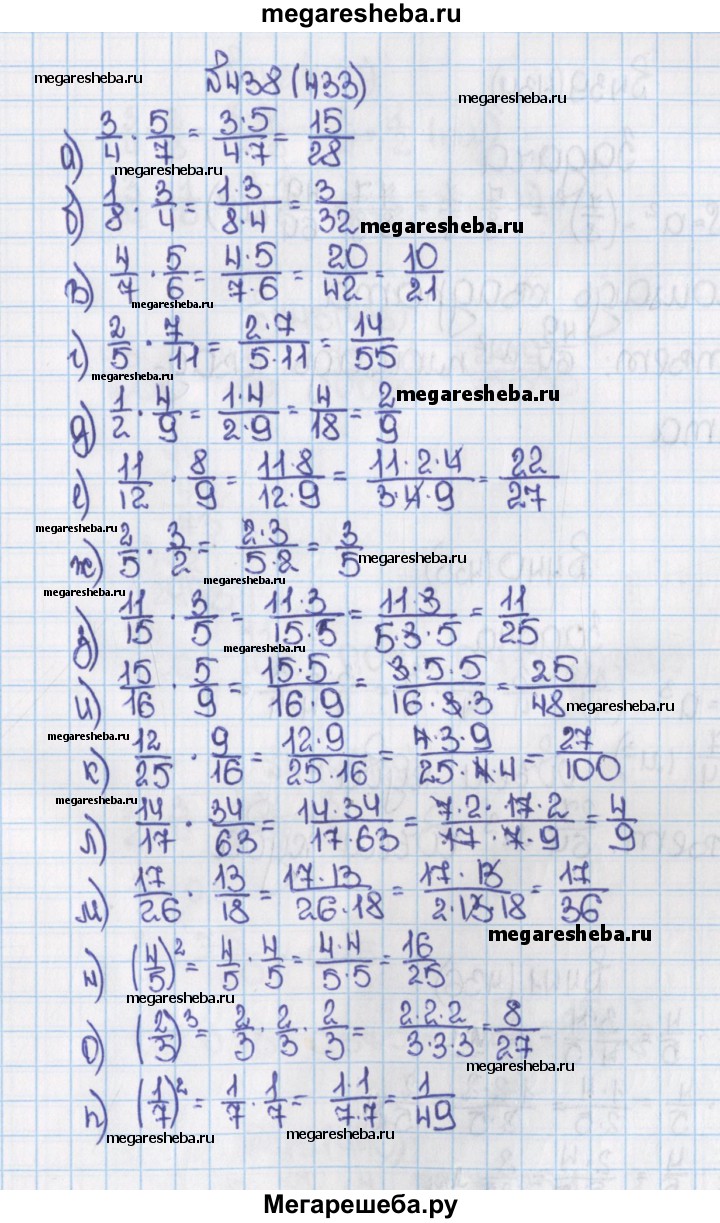 megaresheba.ru
№438 (433)
megaresheba.ru
megaresheba.ru
а) 3/4 · 5/7 = 3·5/4·7 = 15/28
megaresheba.ru
б) 1/8 · 3/4 = 1·3/8·4 = 3/32
megaresheba.ru
в) 4/7 · 5/6 = 4·5/7·6 = 20/42 = 10/21
megaresheba.ru
г) 2/5 · 7/11 = 2·7/5·11 = 14/55
megaresheba.ru
megaresheba.ru
д) 1/2 · 4/9 = 1·4/2·9 = 4/18 = 2/9
е) 11/12 · 8/9 = 11·8/12·9 = 11·2·4/3·4·9 = 22/27
megaresheba.ru
ж) 2/5 · 3/2 = 2·3/5·2 = 3/5
megaresheba.ru
megaresheba.ru
з) 11/15 · 3/5 = 11·3/15·5 = 11·3/5·3·5 = 11/25
megaresheba.ru
и) 15/16 · 5/9 = 15·5/16·9 = 3·5·5/16·3·3 = 25/48
megaresheba.ru
megaresheba.ru
к) 12/25 · 9/16 = 12·9/25·16 = 4·3·9/25·4·4 = 27/100
megaresheba.ru
л) 14/17 · 34/63 = 14·34/17·63 = 7·2·17·2/17·7·9 = 4/9
м) 17/26 · 13/18 = 17·13/26·18 = 17·13/2·13·18 = 17/36
megaresheba.ru
н) (4/5)² = 4/5 · 4/5 = 4·4/5·5 = 16/25
megaresheba.ru
о) (2/3)³ = 2/3 · 2/3 · 2/3 = 2·2·2/3·3·3 = 8/27
megaresheba.ru
п) (1/7)² = 1/7 · 1/7 = 1·1/7·7 = 1/49
megaresheba.ru
megaresheba.ru
Мегарешеба.ру